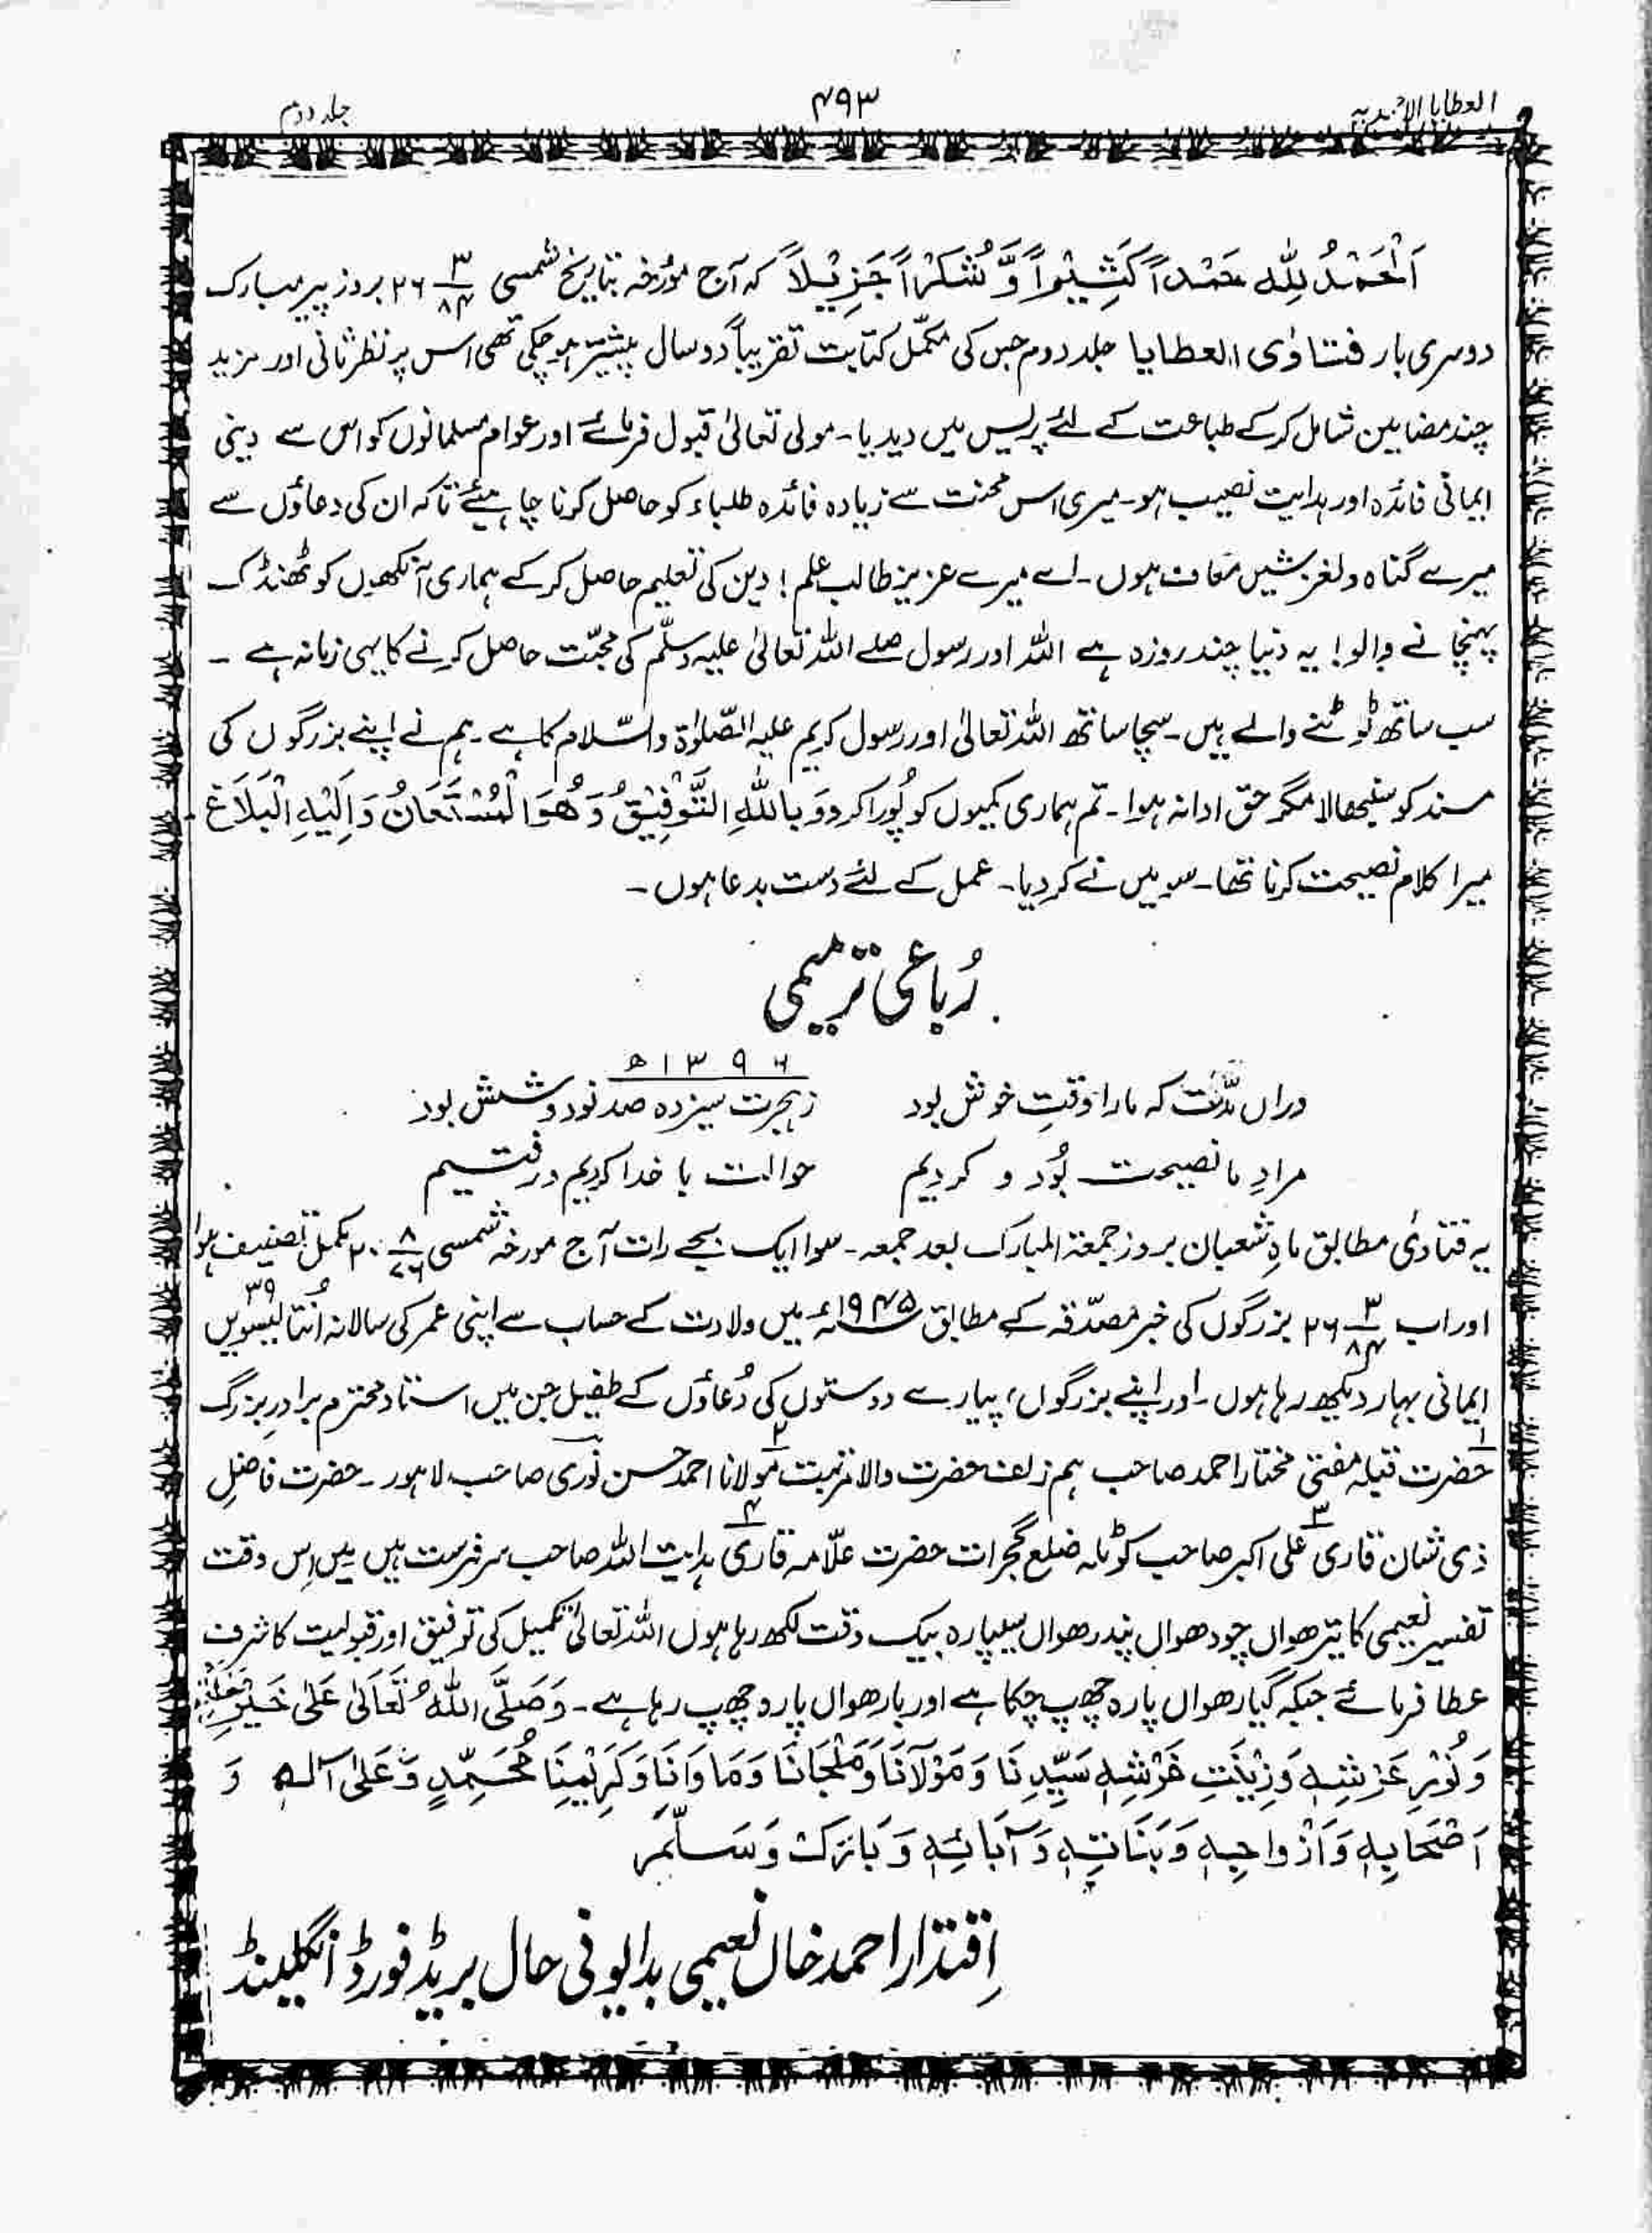 العطایا الاحمدیہ
۴۹۳
جلد دوم
اَلْحَمْدُ لِلّٰہِ حَمْداً کَثِیْراً وَّ شُکْراً جَزِیْلاً کہ آج مؤرخہ بتاریخ شمسی ۲۶ ۳/۸۴ بروز پیر مبارک
دوسری بار فتاوٰی العطایا جلد دوم جس کی مکمّل کتابت تقریباً دو سال پیشتر ہو چکی تھی اس پر نظر ثانی اور مزید
چند مضامین شامل کر کے طباعت کے لئے پریس میں دیدیا۔ مولی تعالیٰ قبول فرمائے اور عوام مسلمانوں کو اس سے دینی
ایمانی فائدہ اور ہدایت نصیب ہو۔ میری اس محنت سے زیادہ فائدہ طلباء کو حاصل کرنا چاہیئے تاکہ ان کی دعاؤں سے
میرے گناہ و لغزشیں معاف ہوں۔ اے میرے عزیز طالب علم! دین کی تعلیم حاصل کر کے ہماری آنکھوں کو ٹھنڈک
پہنچانے والو! یہ دنیا چند روزہ ہے اللہ اور رسول صلے اللہ تعالیٰ علیہ وسلّم کی محبّت حاصل کرنے کا یہی زمانہ ہے ۔
سب ساتھ ٹوٹنے والے ہیں۔ سچا ساتھ اللہ تعالیٰ اور رسول کریم علیہ الصّلوٰۃ والسّلام کا ہے۔ ہم نے اپنے بزرگوں کی
مسند کو سنبھالا مگر حق ادا نہ ہوا۔ تم ہماری کمیوں کو پُورا کر دو وَ بِاللّٰہِ التَّوْفِیْقُ وَ ھُوَ الْمُسْتَعَانُ وَ اِلَیْہِ الْبَلَاغ۔
میرا کلام نصیحت کرنا تھا۔ سو میں نے کر دیا۔ عمل کے لئے دست بدعا ہوں۔
رُباعی ترمیمی
۱۳۹۶ھ
دراں مدّت کہ مارا وقتِ خوش بود زہجرت سیزدہ صد نود و شش بود
مرادِ ما نصیحت بُود و کردیم حوالت با خدا کردیم و رفتیم
یہ فتاویٰ مطابق ماہِ شعبان بروز جمعۃ المبارک بعد جمعہ۔ سوا ایک بجے رات آج مورخہ شمسی ۲۰ ۸/۷۶ مکمل تصنیف ہوا
اور اب ۲۶ ۳/۸۴ بزرگوں کی خبر مصدّقہ کے مطابق ۱۹۴۵ء میں ولادت کے حساب سے اپنی عمر کی سالانہ اُنتالیسویں ۳۹
ایمانی بہار دیکھ رہا ہوں۔ اور اپنے بزرگوں، پیارے دوستوں کی دُعاؤں کے طفیل جن میں استاد محترم برادرِ بزرگ
۱ حضرت قبلہ مفتی مختار احمد صاحب ہم زلف حضرت والا مرتبت ۲ مولانا احمد حسن نوری صاحب لاہور۔ حضرت فاضل
ذی شان قاری ۳ علی اکبر صاحب کوٹلہ ضلع گجرات حضرت علّامہ قاری ۴ ہدایت اللہ صاحب سرفہرست ہیں میں اِس وقت
تفسیر نعیمی کا تیرھواں چودھواں پندرھواں سیپارہ بیک وقت لکھ رہا ہوں اللہ تعالیٰ تکمیل کی توفیق اور قبولیت کا شرف
عطا فرمائے جبکہ گیارھواں پارہ چھپ چکا ہے اور بارھواں پارہ چھپ رہا ہے۔ وَصَلَّی اللّٰہُ تَعَالٰی عَلٰی خَیْرِ خَلْقِہٖ
وَ نُوْرِ عَرْشِہٖ وَ زِیْنَتِ فَرْشِہٖ سَیِّدِنَا وَ مَوْلَانَا وَ مَلْجَانَا وَ مَاوَانَا وَ کَرِیْمِنَا مُحَمَّدٍ وَّ عَلٰی آلِہٖ وَ
اَصْحَابِہٖ وَ اَزْوَاجِہٖ وَ بَنَاتِہٖ وَ آبَائِہٖ وَ بَارَکَ وَ سَلَّمَ
اِقتدار احمد خاں نعیمی بدایونی حال بریڈفورڈ انگلینڈ